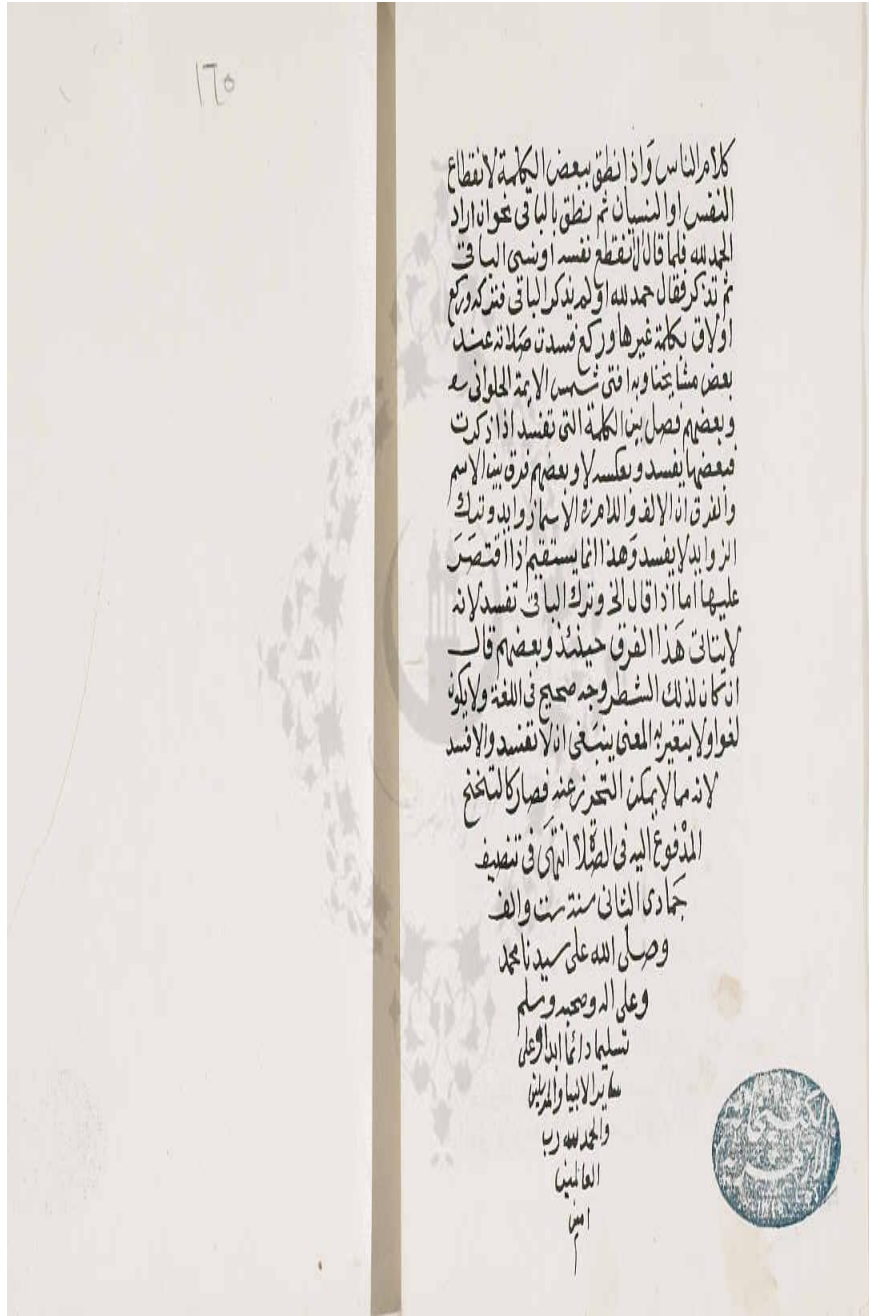 ١٦٥
كلام الناس وَاذا نطق ببعض الكلمة لانقطاع
النفس او النسيان ثم نطق بالباقي نحو ان اراد
الحمد لله فلما قال ال انقطع نفسه او نسي الباقي
ثم تذكر فقال حمد لله او لم يذكر الباقي فتركه وركع
او لاق بكلمة غيرها وركع فسدت صَلاته عند
بعض مشايخنا وبه افتى شمس الايمة الحلواني
وبعضهم فصل بين الكلمة التي تفسد اذا ذكرت
فبعضها يفسد وبعكسه لا وبعضهم فرق بين الاسم
والفرق ان الالف واللام في الاسماء زوايد وترك
الزوايد لا يفسد وَهذا انما يستقيم اذا اقتصَرَ
عليها اما اذا قال الخ وترك الباقي تفسد لانه
لا يتاتى هَذا الفرق حينئذ وبعضهم قال
ان كان لذلك الشطر وجه صحيح في اللغة ولا يكون
لغوا ولا يتغير به المعنى ينبَغي ان لا تفسد والا فسد
لانه مما لا يمكن التحرز عنه فصار كالتنحنح
المدْفوع اليه في الصَّلاة انتهَى في تنصيف
جَمادى الثاني سنة ست والف
وصلى الله على سيدنا محمد
وعلى اله وصحبه وسلم
تسليما دائما ابدا وعلى
ساير الانبيا والمرسلين
والحمد لله رب
العالمين
امين
م